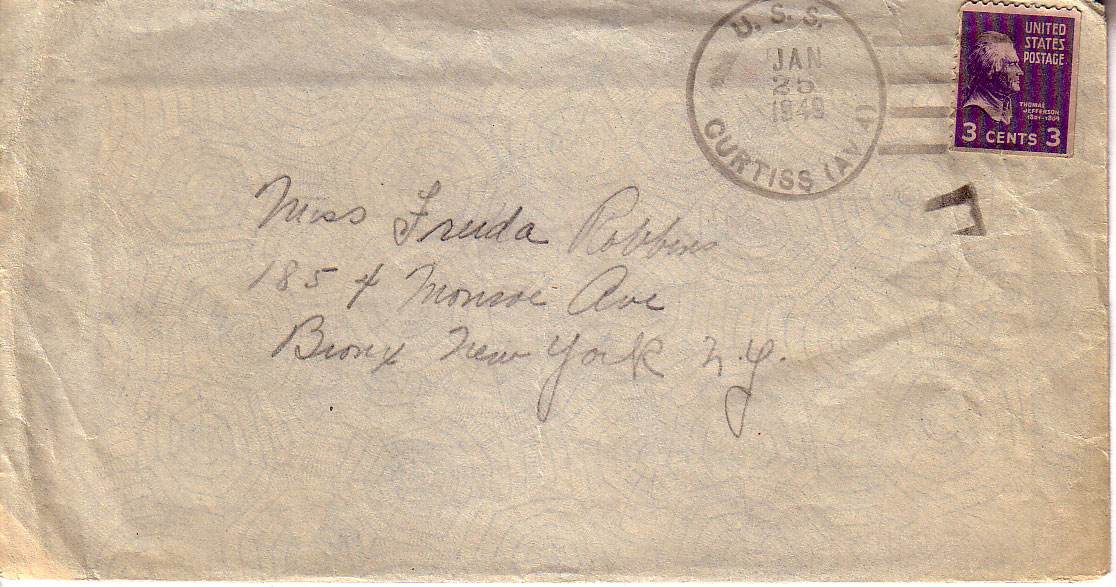 U. S. S.
JAN
25
1949
CURTISS (AV 4)
UNITED
STATES
POSTAGE
THOMAS
JEFFERSON
1801-1809
3 CENTS 3
Miss Freida Robbins
1854 Monroe Ave
Bronx New York N.Y.